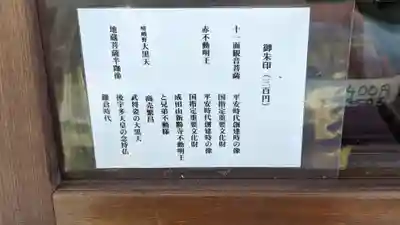 御朱印（三百円）
十一面観音菩薩
平安時代創建時の像
国指定重要文化財
赤不動明王
平安時代創建時の像
国指定重要文化財
成田山新勝寺不動明王
と兄弟不動様
嵯峨野大黒天
商売繁昌
武将姿の大黒天
地蔵菩薩半跏像
後宇多天皇の念持仏
鎌倉時代